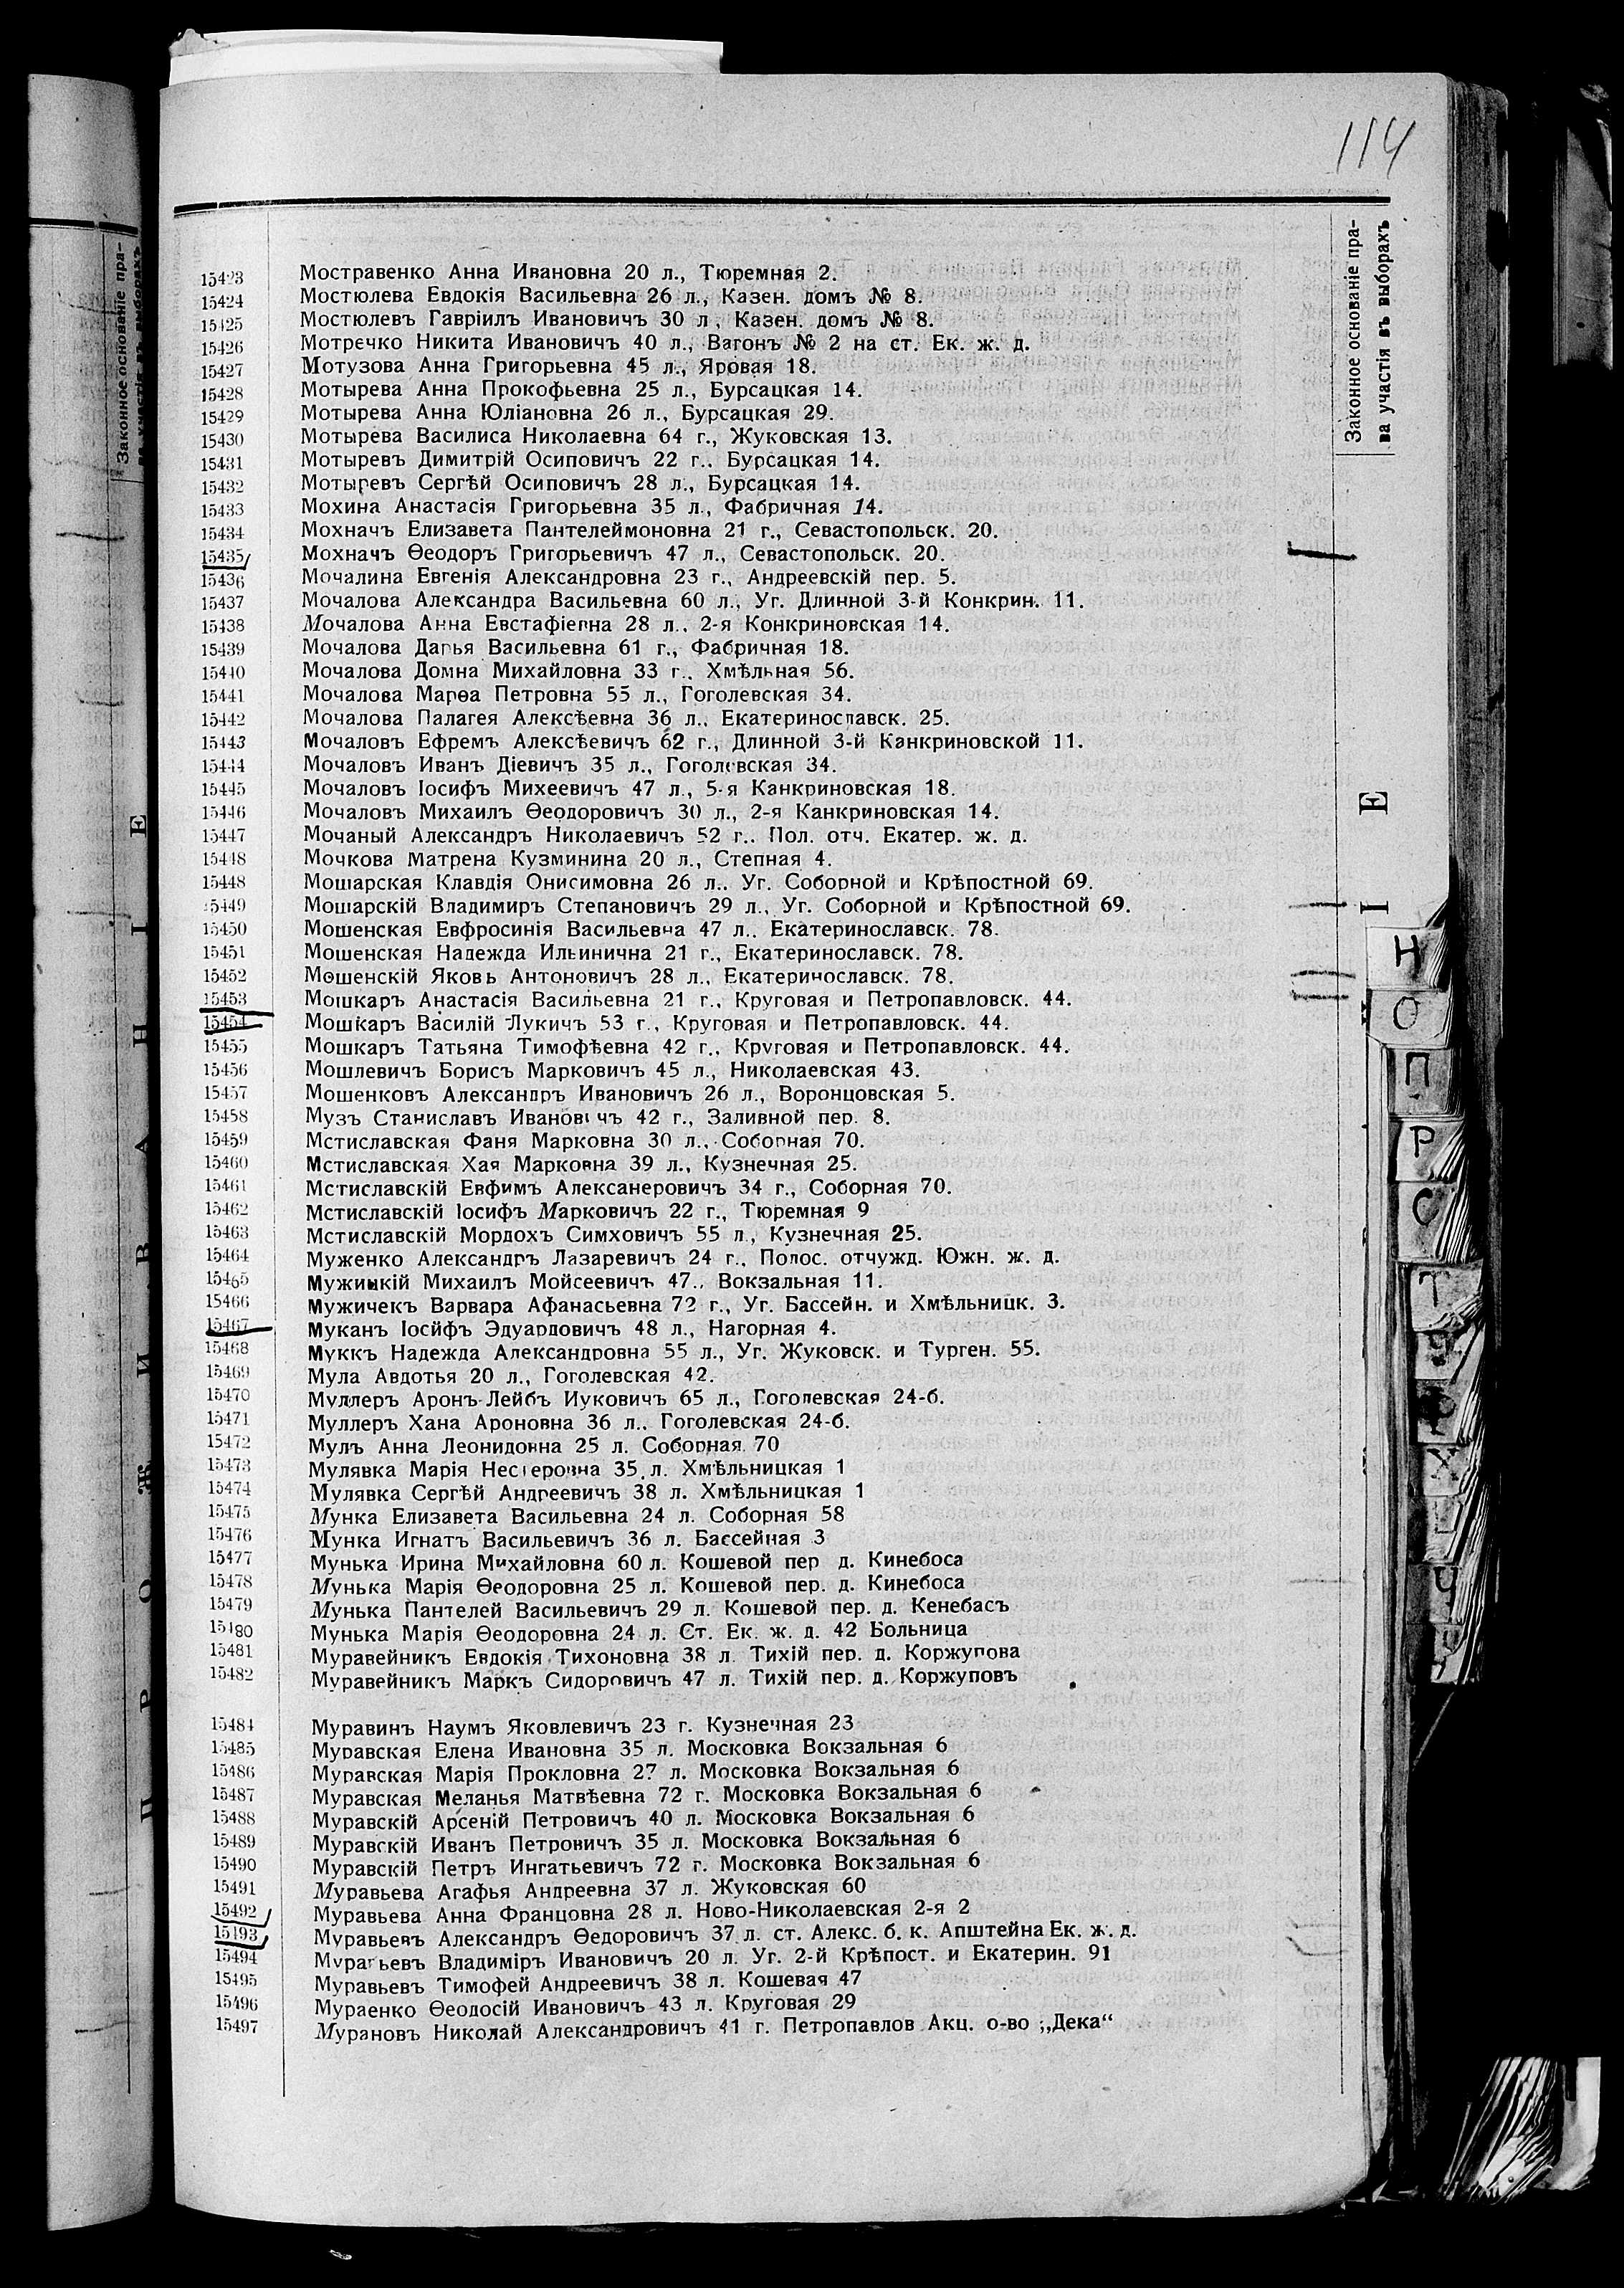 114
Законное основаніе пра-
ва участія въ выборахъ
15423 Мостравенко Анна Ивановна 20 л., Тюремная 2.
15424 Мостюлева Евдокія Васильевна 26 л., Казен. домъ № 8.
15425 Мостюлевъ Гавріилъ Ивановичъ 30 л, Казен. домъ № 8.
15426 Мотречко Никита Ивановичъ 40 л., Вагонъ № 2 на ст. Ек. ж. д.
15427 Мотузова Анна Григорьевна 45 л., Яровая 18.
15428 Мотырева Анна Прокофьевна 25 л., Бурсацкая 14.
15429 Мотырева Анна Юліановна 26 л., Бурсацкая 29.
15430 Мотырева Василиса Николаевна 64 г., Жуковская 13.
15431 Мотыревъ Димитрій Осиповичъ 22 г.. Бурсацкая 14.
15432 Мотыревъ Сергѣй Осиповичъ 28 л., Бурсацкая 14.
15433 Мохина Анастасія Григорьевна 35 л., Фабричная 14.
15434 Мохначъ Елизавета Пантелеймоновна 21 г., Севастопольск. 20.
15435 Мохначъ Ѳеодоръ Григорьевичъ 47 л., Севастопольск. 20.
15436 Мочалина Евгенія Александровна 23 г., Андреевскій пер. 5.
15437 Мочалова Александра Васильевна 60 л., Уг. Длинной 3-й Конкрин. 11.
15438 Мочалова Анна Евстафіевна 28 л.. 2-я Конкриновская 14.
15439 Мочалова Дарья Васильевна 61 г., Фабричная 18.
15440 Мочалова Домна Михайловна 33 г.. Хмѣльная 56.
15441 Мочалова Марѳа Петровна 55 л., Гоголевская 34.
15442 Мочалова Палагея Алексѣевна 36 л.. Екатеринославск. 25.
15443 Мочаловъ Ефремъ Алексѣевичъ 62 г., Длинной 3-й Канкриновской 11.
15444 Мочаловъ Иванъ Діевичъ 35 л., Гоголевская 34.
15445 Мочаловъ Іосифъ Михеевичъ 47 л., 5-я Канкриновская 18.
15446 Мочаловъ Михаилъ Ѳеодоровичъ 30 л., 2-я Канкриновская 14.
15447 Мочаный Александръ Николаевичъ 52 г.. Пол. отч. Екатер. ж. д.
15448 Мочкова Матрена Кузминина 20 л., Степная 4.
15448 Мошарская Клавдія Онисимовна 26 л.. Уг. Соборной и Крѣпостной 69.
15449 Мошарскій Владимиръ Степановичъ 29 л., Уг. Соборной и Крѣпостной 69.
15450 Мошенская Евфросинія Васильевна 47 л.. Екатеринославск. 78.
15451 Мошенская Надежда Ильинична 21 г., Екатеринославск. 78.
15452 Мошенскій Яковь Антоновичъ 28 л., Екатеринославск. 78.
15453 Мошкаръ Анастасія Васильевна 21 г., Круговая и Петропавловск. 44.
15454 Мошкаръ Василій Лукичъ 53 г., Круговая и Петропавловск. 44.
15455 Мошкаръ Татьяна Тимофѣевна 42 г., Круговая и Петропавловск. 44.
15456 Мошлевичъ Борисъ Марковичъ 45 л., Николаевская 43.
15457 Мошенковъ Александръ Ивановичъ 26 л., Воронцовская 5.
15458 Музъ Станиславъ Ивановичъ 42 г., Заливной пер. 8.
15459 Мстиславская Фаня Марковна 30 л., Соборная 70.
15460 Мстиславская Хая Марковна 39 л., Кузнечная 25.
15461 Мстиславскій Евфимъ Алексанерович​ъ 34 г., Соборная 70.
15462 Мстиславскій Іосифъ Марковичъ 22 г., Тюремная 9
15463 Мстиславскій Мордохъ Симховичъ 55 л., Кузнечная 25.
15464 Муженко Александръ Лазаревичъ 24 г., Полос. отчужд. Южн. ж. д.
15465 Мужицкій Михаилъ Мойсеевичъ 47., Вокзальная 11.
15466 Мужичекъ Варвара Афанасьевна 72 г., Уг. Бассейн. и Хмѣльницк. 3.
15467 Муканъ Іосйфъ Эдуардовичъ 48 л., Нагорная 4.
15468 Муккъ Надежда Александровна 55 л., Уг. Жуковск. и Турген. 55.
15469 Мула Авдотья 20 л., Гоголевская 42.
15470 Муллеръ Аронъ-Лейбъ Иуковичъ 65 л., Гоголевская 24-б.
15471 Муллеръ Хана Ароновна 36 л.. Гоголевская 24-б.
15472 Мулъ Анна Леонидовна 25 л. Соборная 70
15473 Мулявка Марія Несгеровна 35 л. Хмѣльницкая 1
15474 Мулявка Сергѣй Андреевичъ 38 л. Хмѣльницкая 1
15475 Мунка Елизавета Васильевна 24 л. Соборная 58
15476 Мунка Игнатъ Васильевичъ 36 л. Бассейная 3
15477 Мунька Ирина Михайловна 60 л. Кошевой пер д. Кинебоса
15478 Мунька Марія Ѳеодоровна 25 л. Кошевой пер. д. Кинебоса
15479 Мунька Пантелей Васильевичъ 29 л. Кошевой пер. д. Кенебасъ
15480 Мунька Марія Ѳеодоровна 24 л. Ст. Ек. ж. д. 42 Больница
15481 Муравейникъ Евдокія Тихоновна 38 л. Тихій пер. д. Коржупова
15482 Муравейникъ Маркъ Сидоровичъ 47 л. Тихій пер. д. Коржуповъ
15484 Муравинъ Наумъ Яковлевичъ 23 г. Кузнечная 23
15485 Муравская Елена Ивановна 35 л. Московка Вокзальная 6
15486 Муравская Марія Прокловна 27 л. Московка Вокзальная 6
15487 Муравская Меланья Матвѣевна 72 г. Московка Вокзальная 6
15488 Муравскій Арсеній Петровичъ 40 л. Московка Вокзальная 6
15489 Муравскій Иванъ Петровичъ 35 л. Московка Вокзальная 6
15490 Муравскій Петръ Ингатьевичъ 72 г. Московка Вокзальная 6
15491 Муравьева Агафья Андреевна 37 л. Жуковская 60
15492 Муравьева Анна Францовна 28 л. Ново-Николаевская 2-я 2
15493 Муравьевъ Александръ Ѳедоровичъ 37 л. ст. Алекс. б. к. Апштейна Ек. ж. д.
15494 Муравьевъ Владиміръ Ивановичъ 20 л. Уг. 2-й Крѣпост. и Екатерин. 91
15495 Муравьевъ Тимофей Андреевичъ 38 л. Кошевая 47
15496 Мураенко Ѳеодосій Ивановичъ 43 л. Круговая 29
15497 Мурановъ Николай Александровичъ 41 г. Петропавлов Акц. о-во „Дека“
Н
О
П
Р
С
Т
У
Ф
Х
Ч